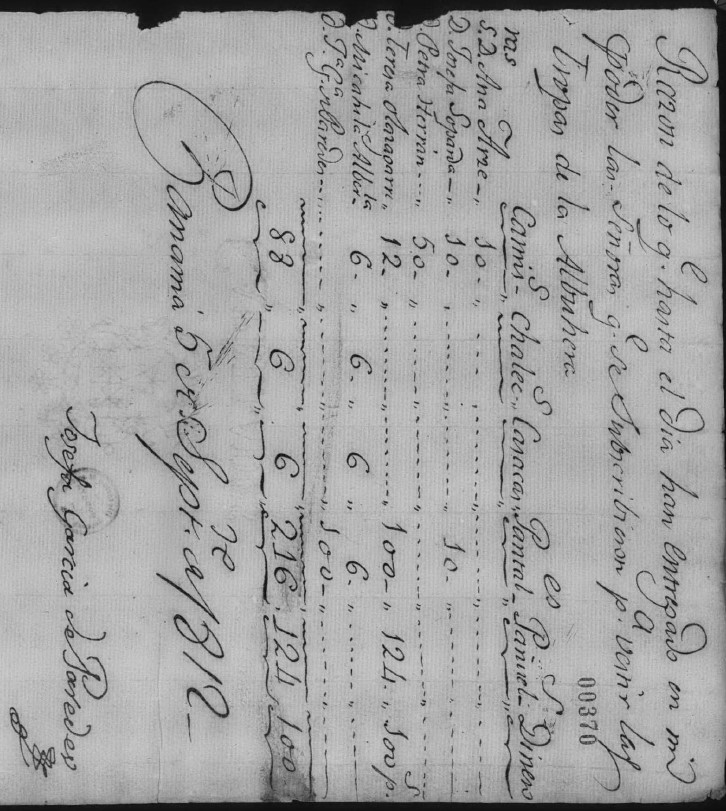 Razon de lo q.e hasta el dia han entregado en mi
poder las Señoras q.e se Subscribieron p.a vestir las
tropas de la Albuhera
00370
ras Camis.s Chalec.s Casacas, Pantal.es Pañuel.s Dineros
S. D. Ana Arze - 10
D. Josefa 10 10
D. Petra Herran 50
D. Teresa 12 100 124 100 p.s
D. Micahela Albert 6 6 6 6
D. 100
88 6 6 216 124 100
Panamá 5 de Sept.re de 1812
Josefa Garcia de Paredes